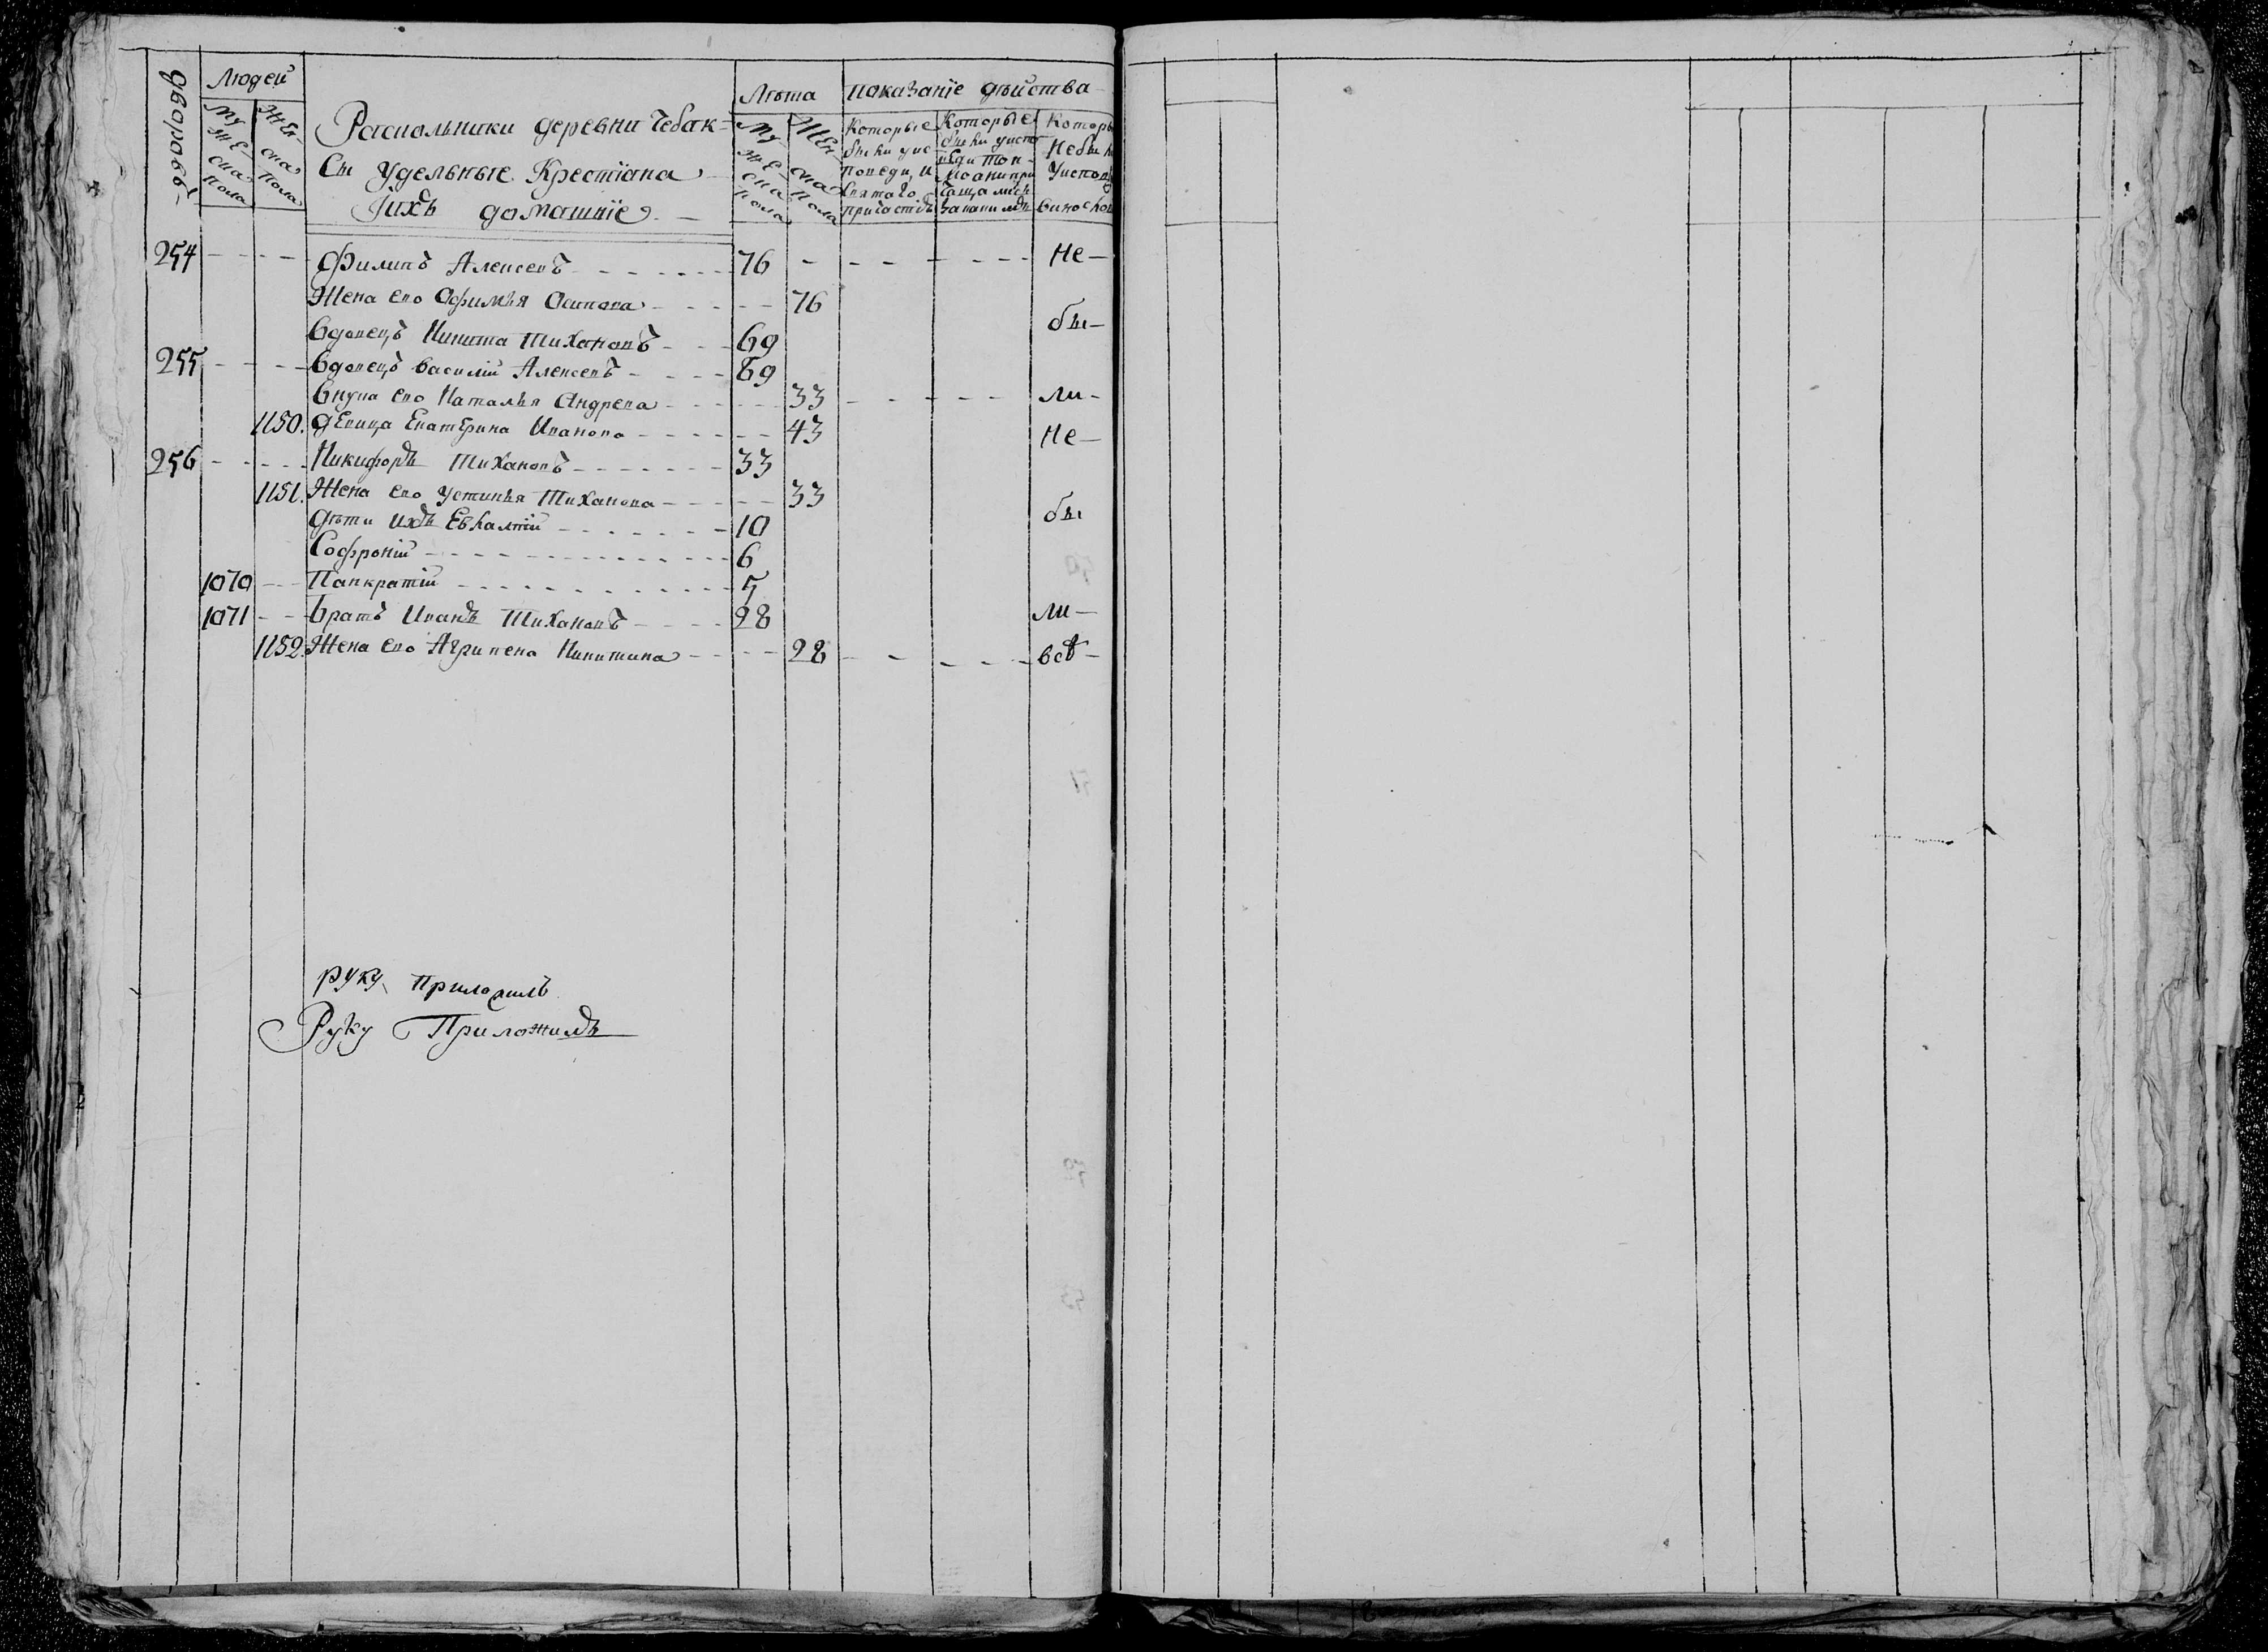 дворовъ
Людей
Му
же
ска
пола
Жен
ска
пола
Раскольники деревни Чебак=
сы Удельные Крестїана
Iихъ домашнїе.
Лѣта
Му
же
ска
пола
Жен
ска
пола
показанїе дѣйства
Которые
были уис
поведи, и
святаго
причастїя
Которые
были уиспо
веди ток
мо а не при
чащались
За каким
Которы
Небыли
Уиспов
254 - - - Филипъ Алексевъ - - - 76 - - - - - Не-
Жена ево Офимья Осипова - - - 76
бы-
Вдовецъ Никита Тихановъ - - 69
255 - - - Вдовецъ Василiй Алексевъ - - - 69
Внука ево Наталья Андрева - - - 33 - - - - - ли-
1150. Девица Екатерина Иванова - - - 43 Не-
256 - - - Никифоръ Тихановъ - - - 33
1151. Жена ево Устинья Тиханова - - - 33
бы
дѣти ихъ Евлампiй - - - 10
Софронiй - - - 6
1070 - - Панкратiй - - - 5
1071 - - Братъ Иванъ Тихановъ - - - 28 ли-
1152. Жена ево Агрипена Никитина - - - 28 - - - - - всѣ-
руку приложилъ
Руку Приложилъ